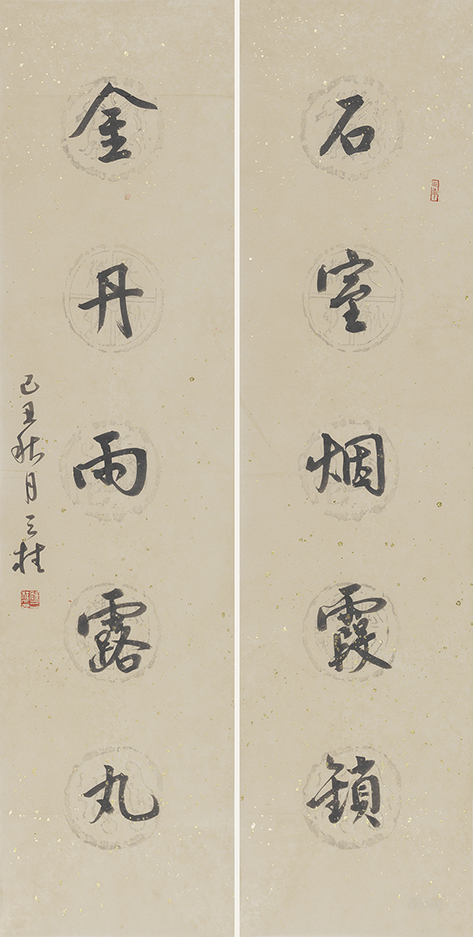 石室烟霞鎖
金丹雨露丸
己丑秋月三桂